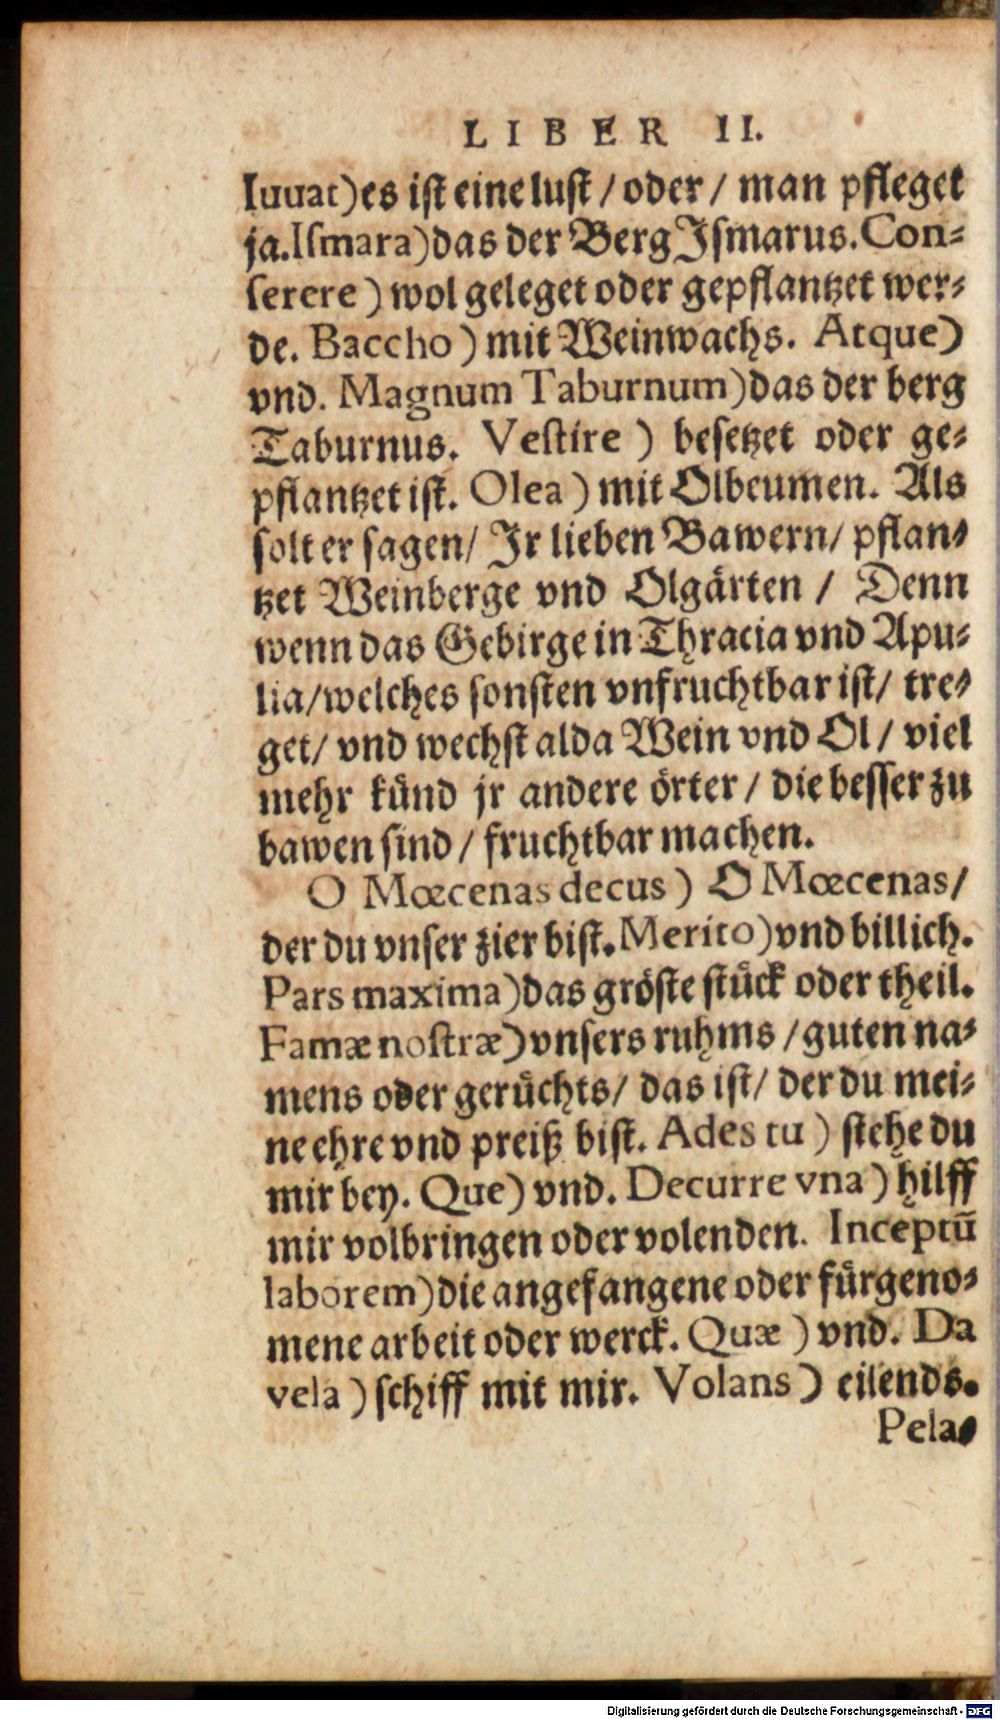 LIBER II.
Iuuat) es iſt eine luſt / oder / man pfleget
ja. Iſmara) das der Berg Iſmarus. Con⸗
ſerere) wol geleget oder gepflantzet wer⸗
de. Baccho) mit Weinwachs. Atque)
vnd. Magnum Taburnum) das der berg
Taburnus. Veſtire) beſetzet oder ge⸗
pflantzet iſt. Olea) mit Olbeumen. Als
ſolt er ſagen / Ir lieben Bawern / pflan⸗
tzet Weinberge vnd Olgaͤrten / Denn
wenn das Gebirge in Thracia vnd Apu⸗
lia / welches ſonſten vnfruchtbar iſt / tre⸗
get / vnd wechſt alda Wein vnd Ol / viel
mehr kuͤnd jr andere oͤrter / die beſſer zu
bawen ſind / fruchtbar machen.
O Mœcenas decus) O Mœcenas /
der du vnſer zier biſt. Merito) vnd billich.
Pars maxima) das groͤſte ſtuͤck oder theil.
Famæ noſtræ) vnſers ruhms / guten na⸗
mens oder geruͤchts / das iſt / der du mei⸗
ne ehre vnd preiß biſt. Ades tu) ſtehe du
mir bey. Que) vnd. Decurre vna) hilff
mir volbringen oder volenden. Inceptũ
laborem) die angefangene oder fuͤrgeno⸗
mene arbeit oder werck. Quæ) vnd. Da
vela) ſchiff mit mir. Volans) eilends.
Pela⸗
Digitalisierung gefördert durch die Deutsche Forschungsgemeinschaft - DFG